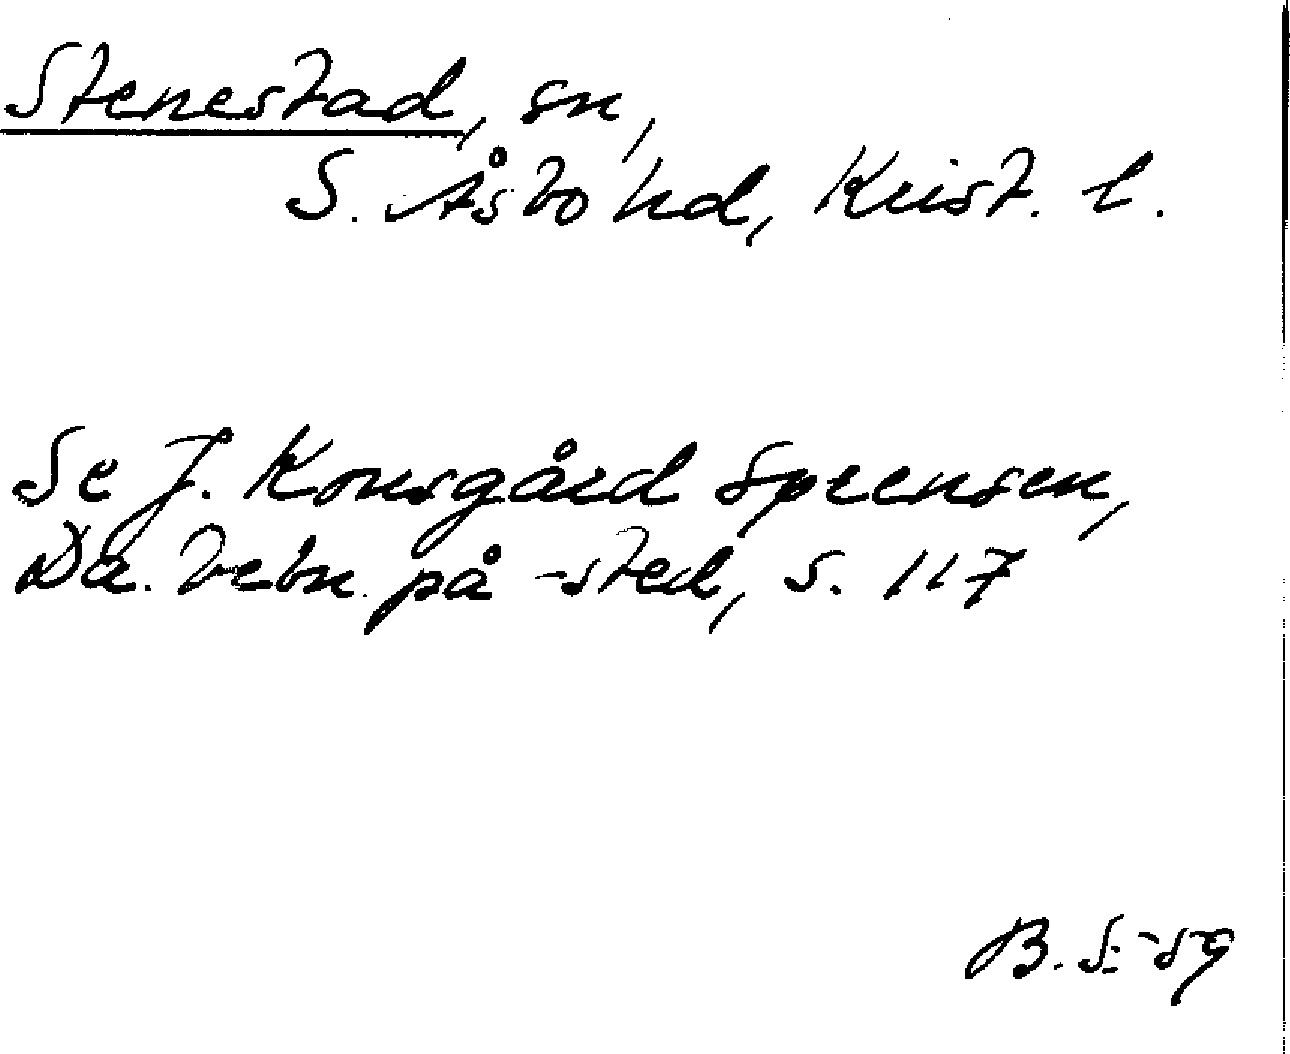 Stenestad, sn,
S. Åsbo hd, Krist. l.
Se J. Kousgård Sørensen,
Da. bebn. på -sted, s. 117
B. S:-59